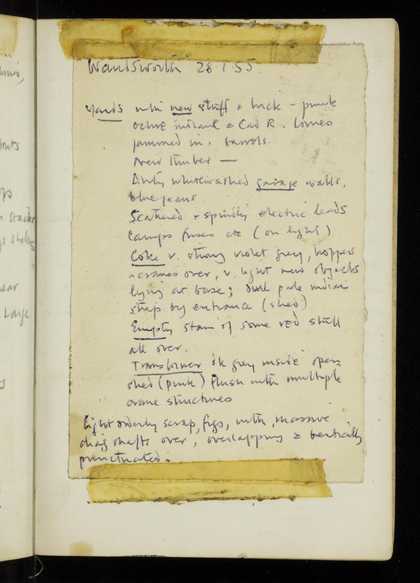 Wandsworth 28.1.55
yards with new stuff & brick – pink
ochre & Cad R. lorries
jammed in. barrels.
New timber —
dirty whitewashed garage walls,
blue jeans.
Scattered & spindly electric leads
lamps fuses etc (on light)
Coke v. strong violet grey, hoppers
& cranes over, v. light new objects
lying at base; dull pale indian
strip by entrance (shed)
Empty stain of some red stuff
all over.
Transformer dk grey inside open
shed (pink) flush with multiple
crane structures
light orderly scrap, figs, with massive
diag shafts over, overlapping &
punctuated.
ts
ps
ear
Large